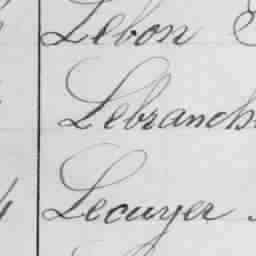 Lebon
Lebranch
Lecuyer